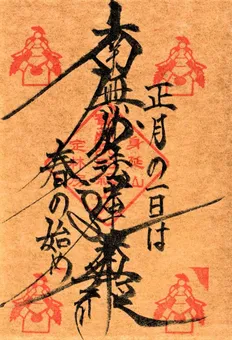 正月の一日は
南無妙法蓮華経
春の始め
身延山